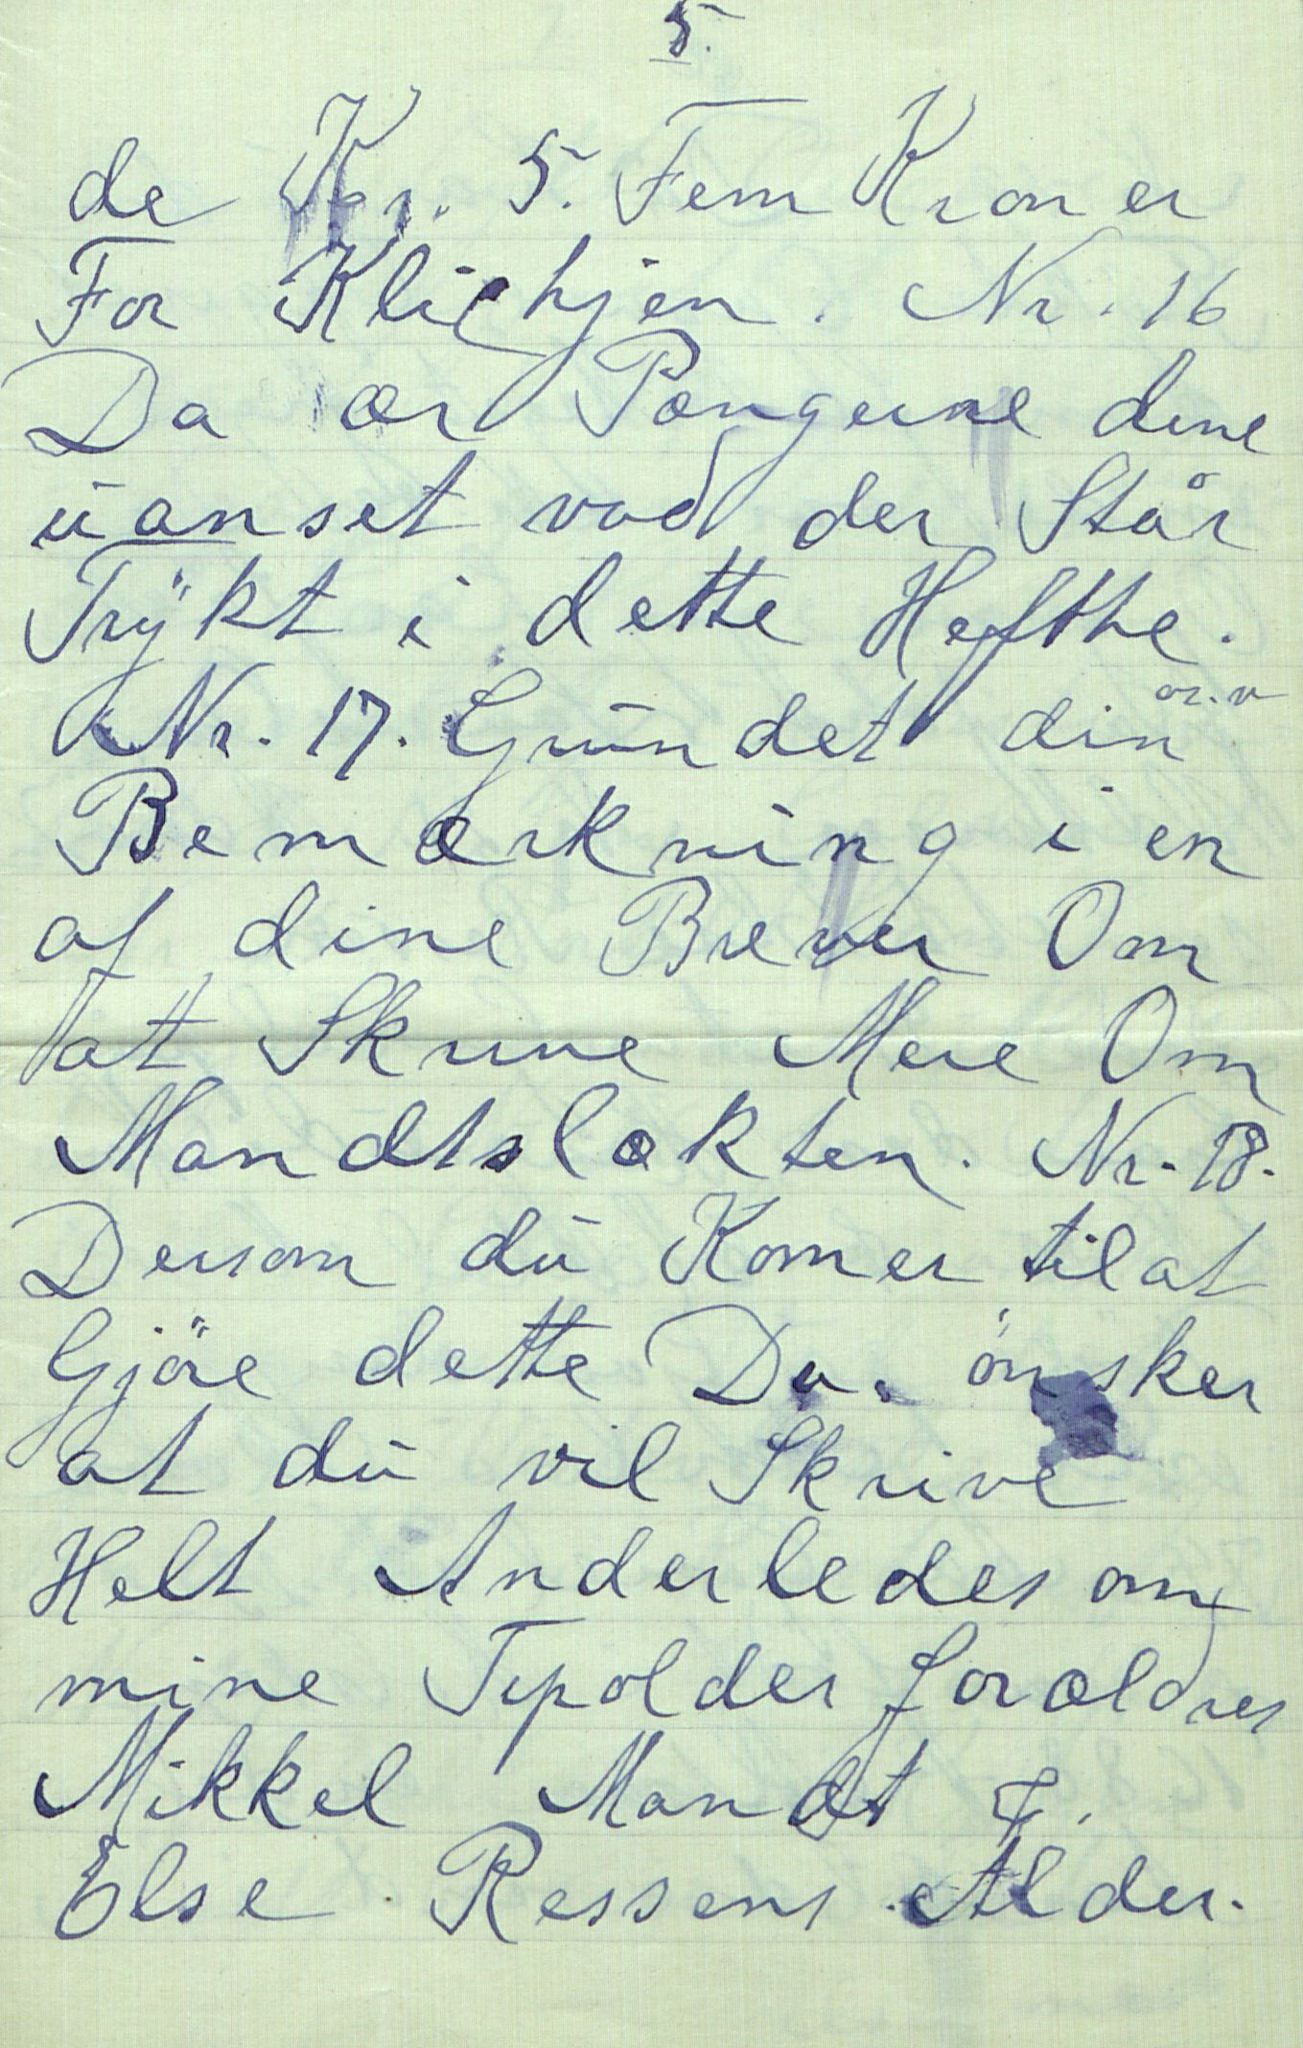 5.
de Kr. 5. Fem Kroner
For Klichjen. Nr. 16
Da ær Pængerne dine
uanset vad der Står
Trykt i dette Hefthe.
Nr. 17. Grundet din
Bemærkning i en
af dine Brever Om
at Skrive Mere Om
Mandtslækten. Nr. 18.
Dersom du Komer til at
Gjöre dette Da. önsker
at du vil Skrive
Helt Anderledes om
mine Tipolder foræældres
Mikkel Mandt &.
Else Ressens Alder.